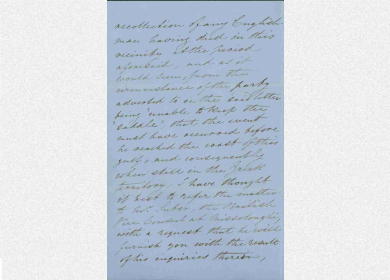 recollection of any English
man having died in this
vicinity at the period
aforesaid, and as it
would seem, from the
circumstance of the party
adverted to in the said letter
being "unable to keep the
saddle", that the event
must have occurred before
he reached the coast of this
gulf, and consequently
when still on the Greek
territory, I have thought
it best to refer the matter
to Mr. the British
Vice Consul at Missolonghi,
with a request that he will
furnish you with the result
of his enquiries therein,